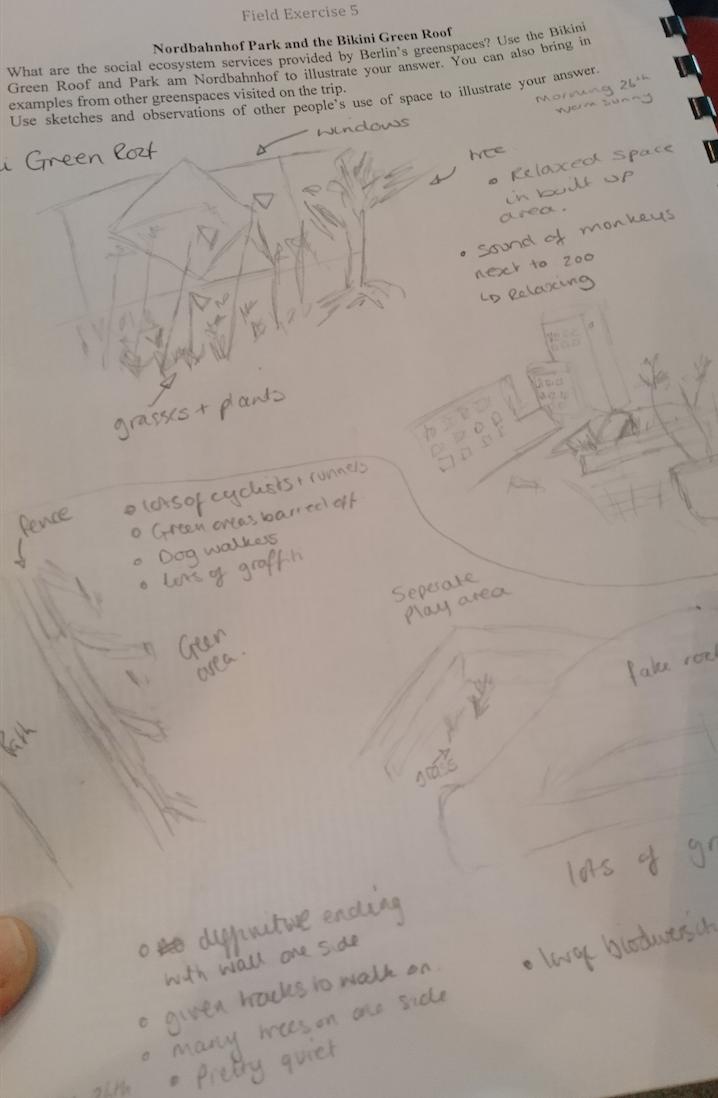 Field Exercise 5
Nordbahnhof Park and the Bikini Green Roof
What are the social ecosystem services provided by Berlin's greenspaces? Use the Bikini
Green Roof and Park am Nordbahnhof to illustrate your answer. You can also bring in
examples from other greenspaces visited on the trip.
Use sketches and observations of other people's use of space to illustrate your answer.
Morning 26th
warm sunny
i Green Roof
windows
tree
• Relaxed space
in built up
area.
• Sound of monkeys
next to zoo
↳ Relaxing
grasses + plants
fence
• lots of cyclists + runners
• Green areas barred off
• Dog walkers
• Lots of graffiti
Green
area.
Path
Seperate
Play area
grass
fake
lots of
• definitive ending
with wall one side
• given tracks to walk on.
• many trees on one side
• Pretty quiet
26th